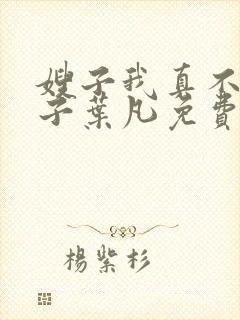 嫂子我真不
子葉凡免費
楊紫杉